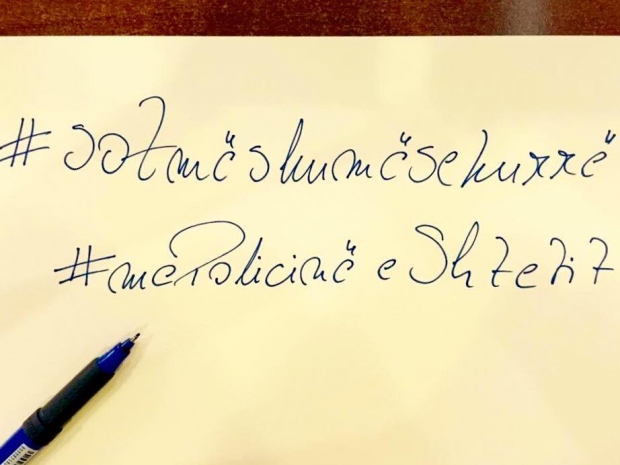 #sotmëshumësekurrë
#mePolicinë e Shtetit